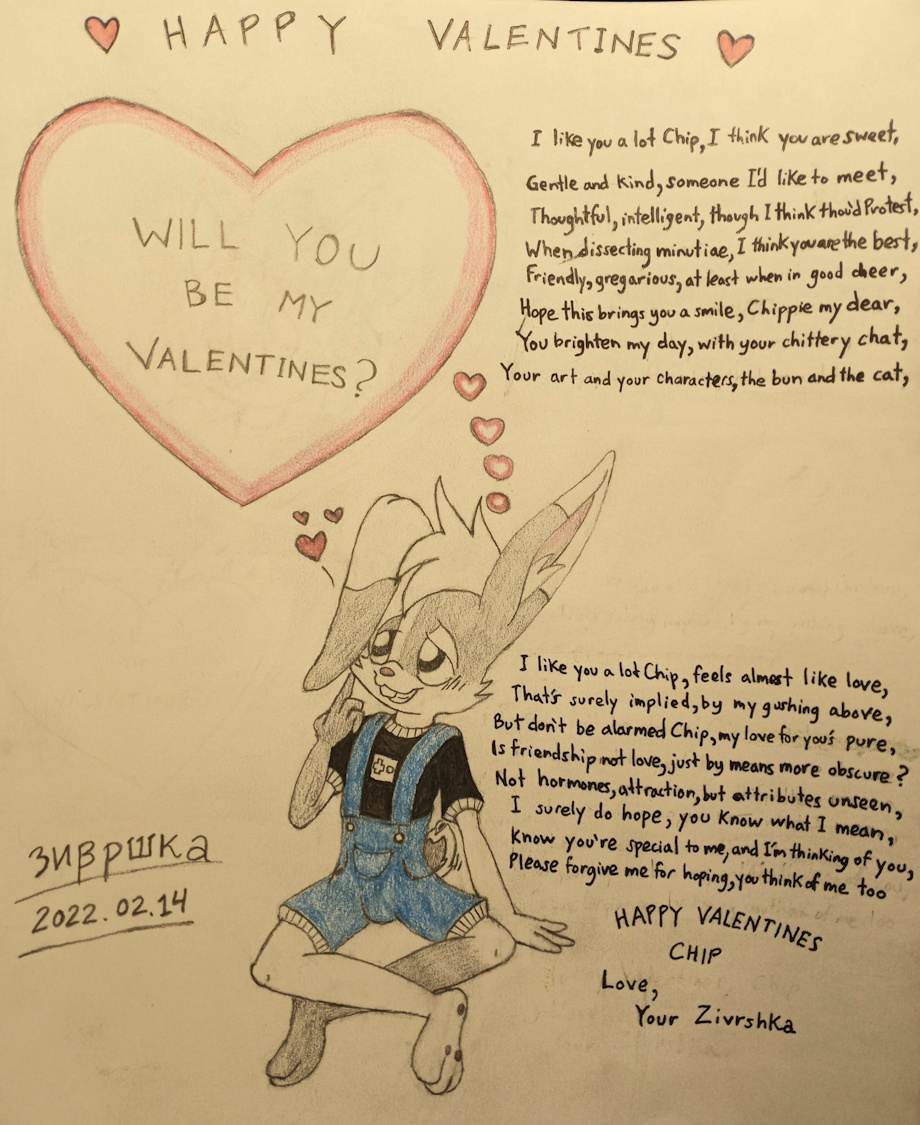 HAPPY VALENTINES
WILL YOU
BE MY
VALENTINES?
I like you a lot Chip, I think you are sweet,
Gentle and kind, someone I'd like to meet,
Thoughtful, intelligent, though I think thou'd Protest,
When dissecting minutiae, I think you are the best,
Friendly, gregarious, at least when in good cheer,
Hope this brings you a smile, Chippie my dear,
You brighten my day, with your chittery chat,
Your art and your characters, the bun and the cat,
I like you a lot Chip, feels almost like love,
That's surely implied, by my gushing above,
But don't be alarmed Chip, my love for you's pure,
Is friendship not love, just by means more obscure?
Not hormones, attraction, but attributes unseen,
I surely do hope, you know what I mean,
Know you're special to me, and I'm thinking of you,
Please forgive me for hoping, you think of me too
HAPPY VALENTINES
CHIP
Love,
Your Zivrshka
ЗИВРШКА
2022.02.14